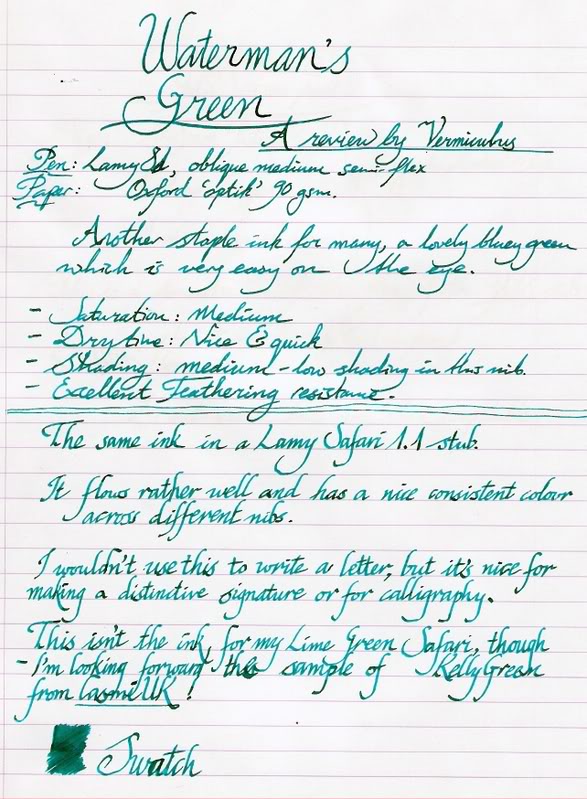 Waterman's
Green
A review by Vermiculus
Pen: Lamy 81, oblique medium semi-flex
Paper: Oxford 'optik' 90 gsm.
Another staple ink for many, a lovely bluey green
which is very easy on the eye.
- Saturation: Medium
- Drytime: Nice & quick
- Shading: medium-low shading in this nib.
- Excellent Feathering resistance.
The same ink in a Lamy Safari 1.1 stub.
It flows rather well and has a nice consistent colour
across different nibs.
I wouldn't use this to write a letter, but it's nice for
making a distinctive signature or for calligraphy.
This isn't the ink for my Lime Green Safari, though
- I'm looking forward the sample of Kelly Green
from UK!
Swatch